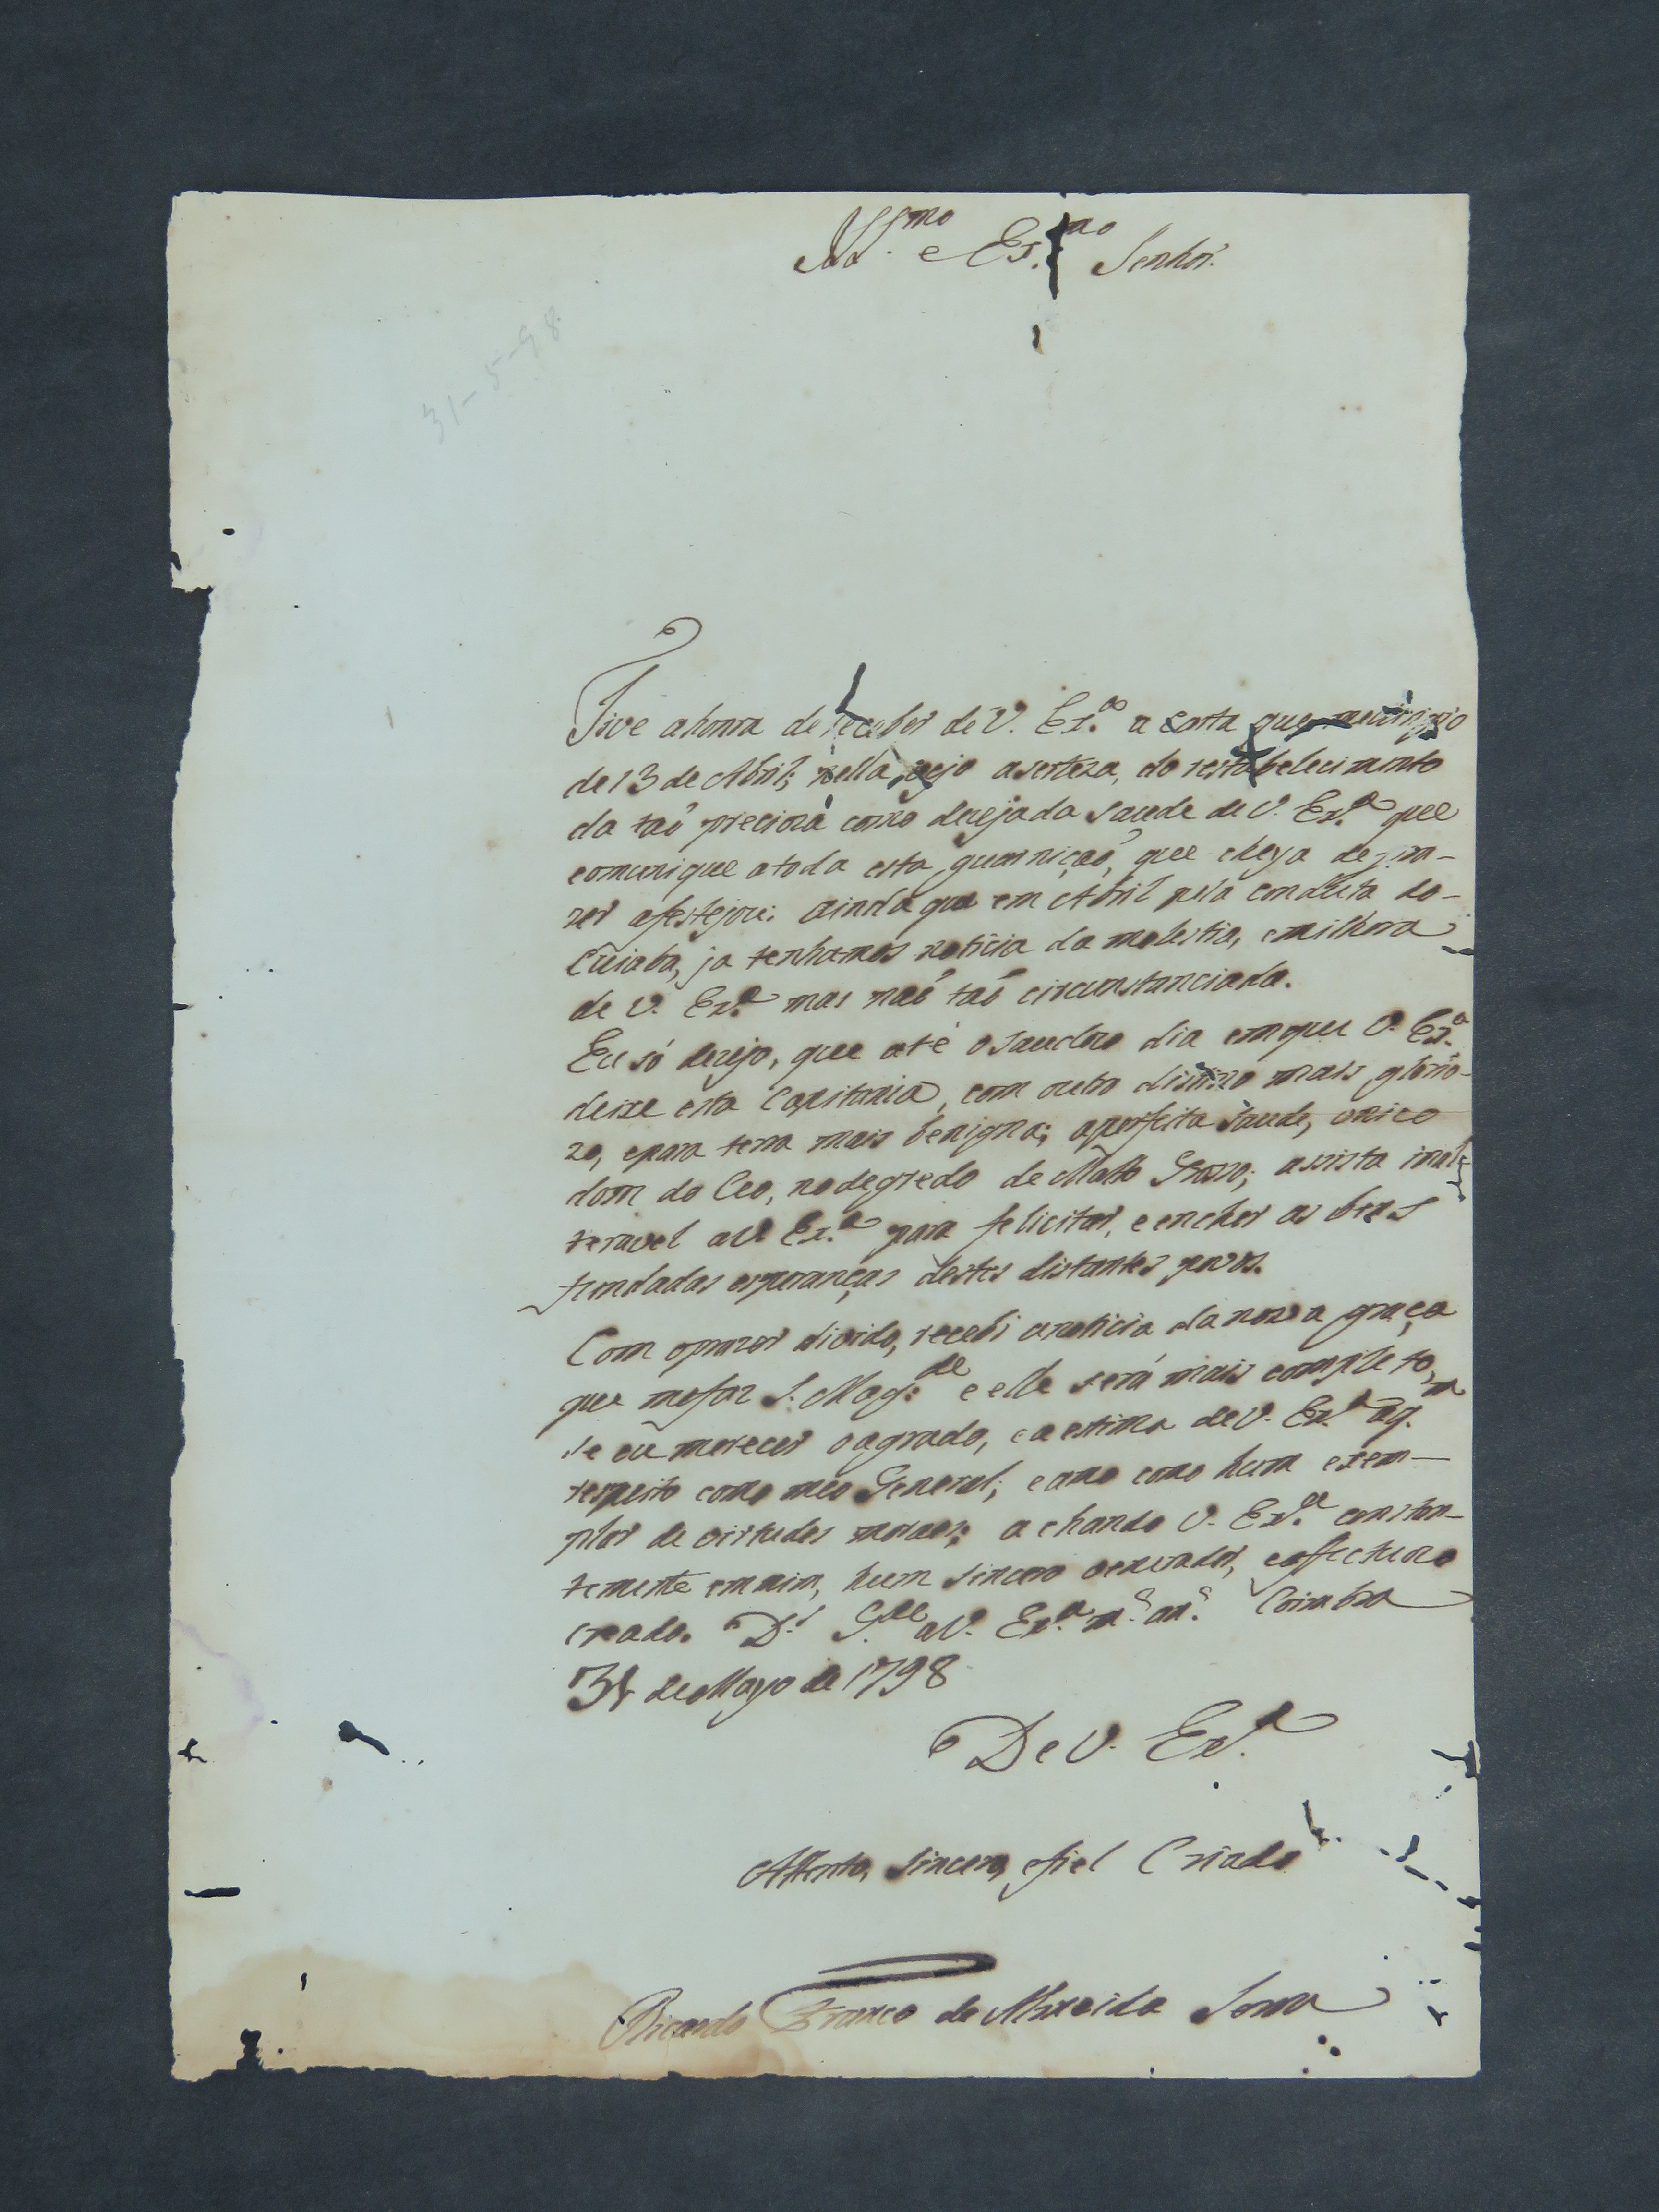 Ill.mo e Ex.mo Senhor.
31-5-98
Tive ahonra de receber de V. Ex.a a carta que medirigio
de 13 de Abril; nella vejo acerteza, do restabelecimento
da taõ precioza como dezejada saude de V. Ex.a que
comuniquei atoda esta guarniçaõ, que cheya de pra-
zer afestejou: ainda que em Abril pela conducta do
Cuiaba, ja tenhamos noticia da molestia, emilhora
de V. Ex.a mas naõ taõ circunstanciada.
Eu só dezejo, que até osaudozo dia emque V. Ex.a
deixe esta Capitania, com outro distino mais glorio-
zo, epara terra mais benigna; aperfeita saude, unico
dom do Ceo, nodegredo de Matto Grosso; assista inal-
teravel aV. Ex.a para felicitar, eencher as bens
fundadas esperanças destes distantes povos.
Com oprazer divido, recebi anoticia danova graça
que mefaz S. Mag.de e elle será mais completo,
se eu merecer oagrado, eaestima deV. Ex.a aq.m
respeito como meo General; eamo como hum exem-
plar de virtudes moraes; achando V. Ex.a constan-
temente emmim, hum sincero venerador, eaffectuozo
creado. D.s G.de aV. Ex.a m.s an.s Coimbra
31 deMayo de 1798
De V. Ex.a
Attento, sincero, efiel Criado
Ricardo Franco de Almeida Serra